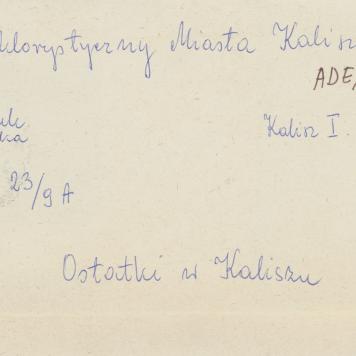 klorystyczny Miasta Kalisz
ADE
Kalisz I.
ka
23/9 A
Ostatki w Kaliszu